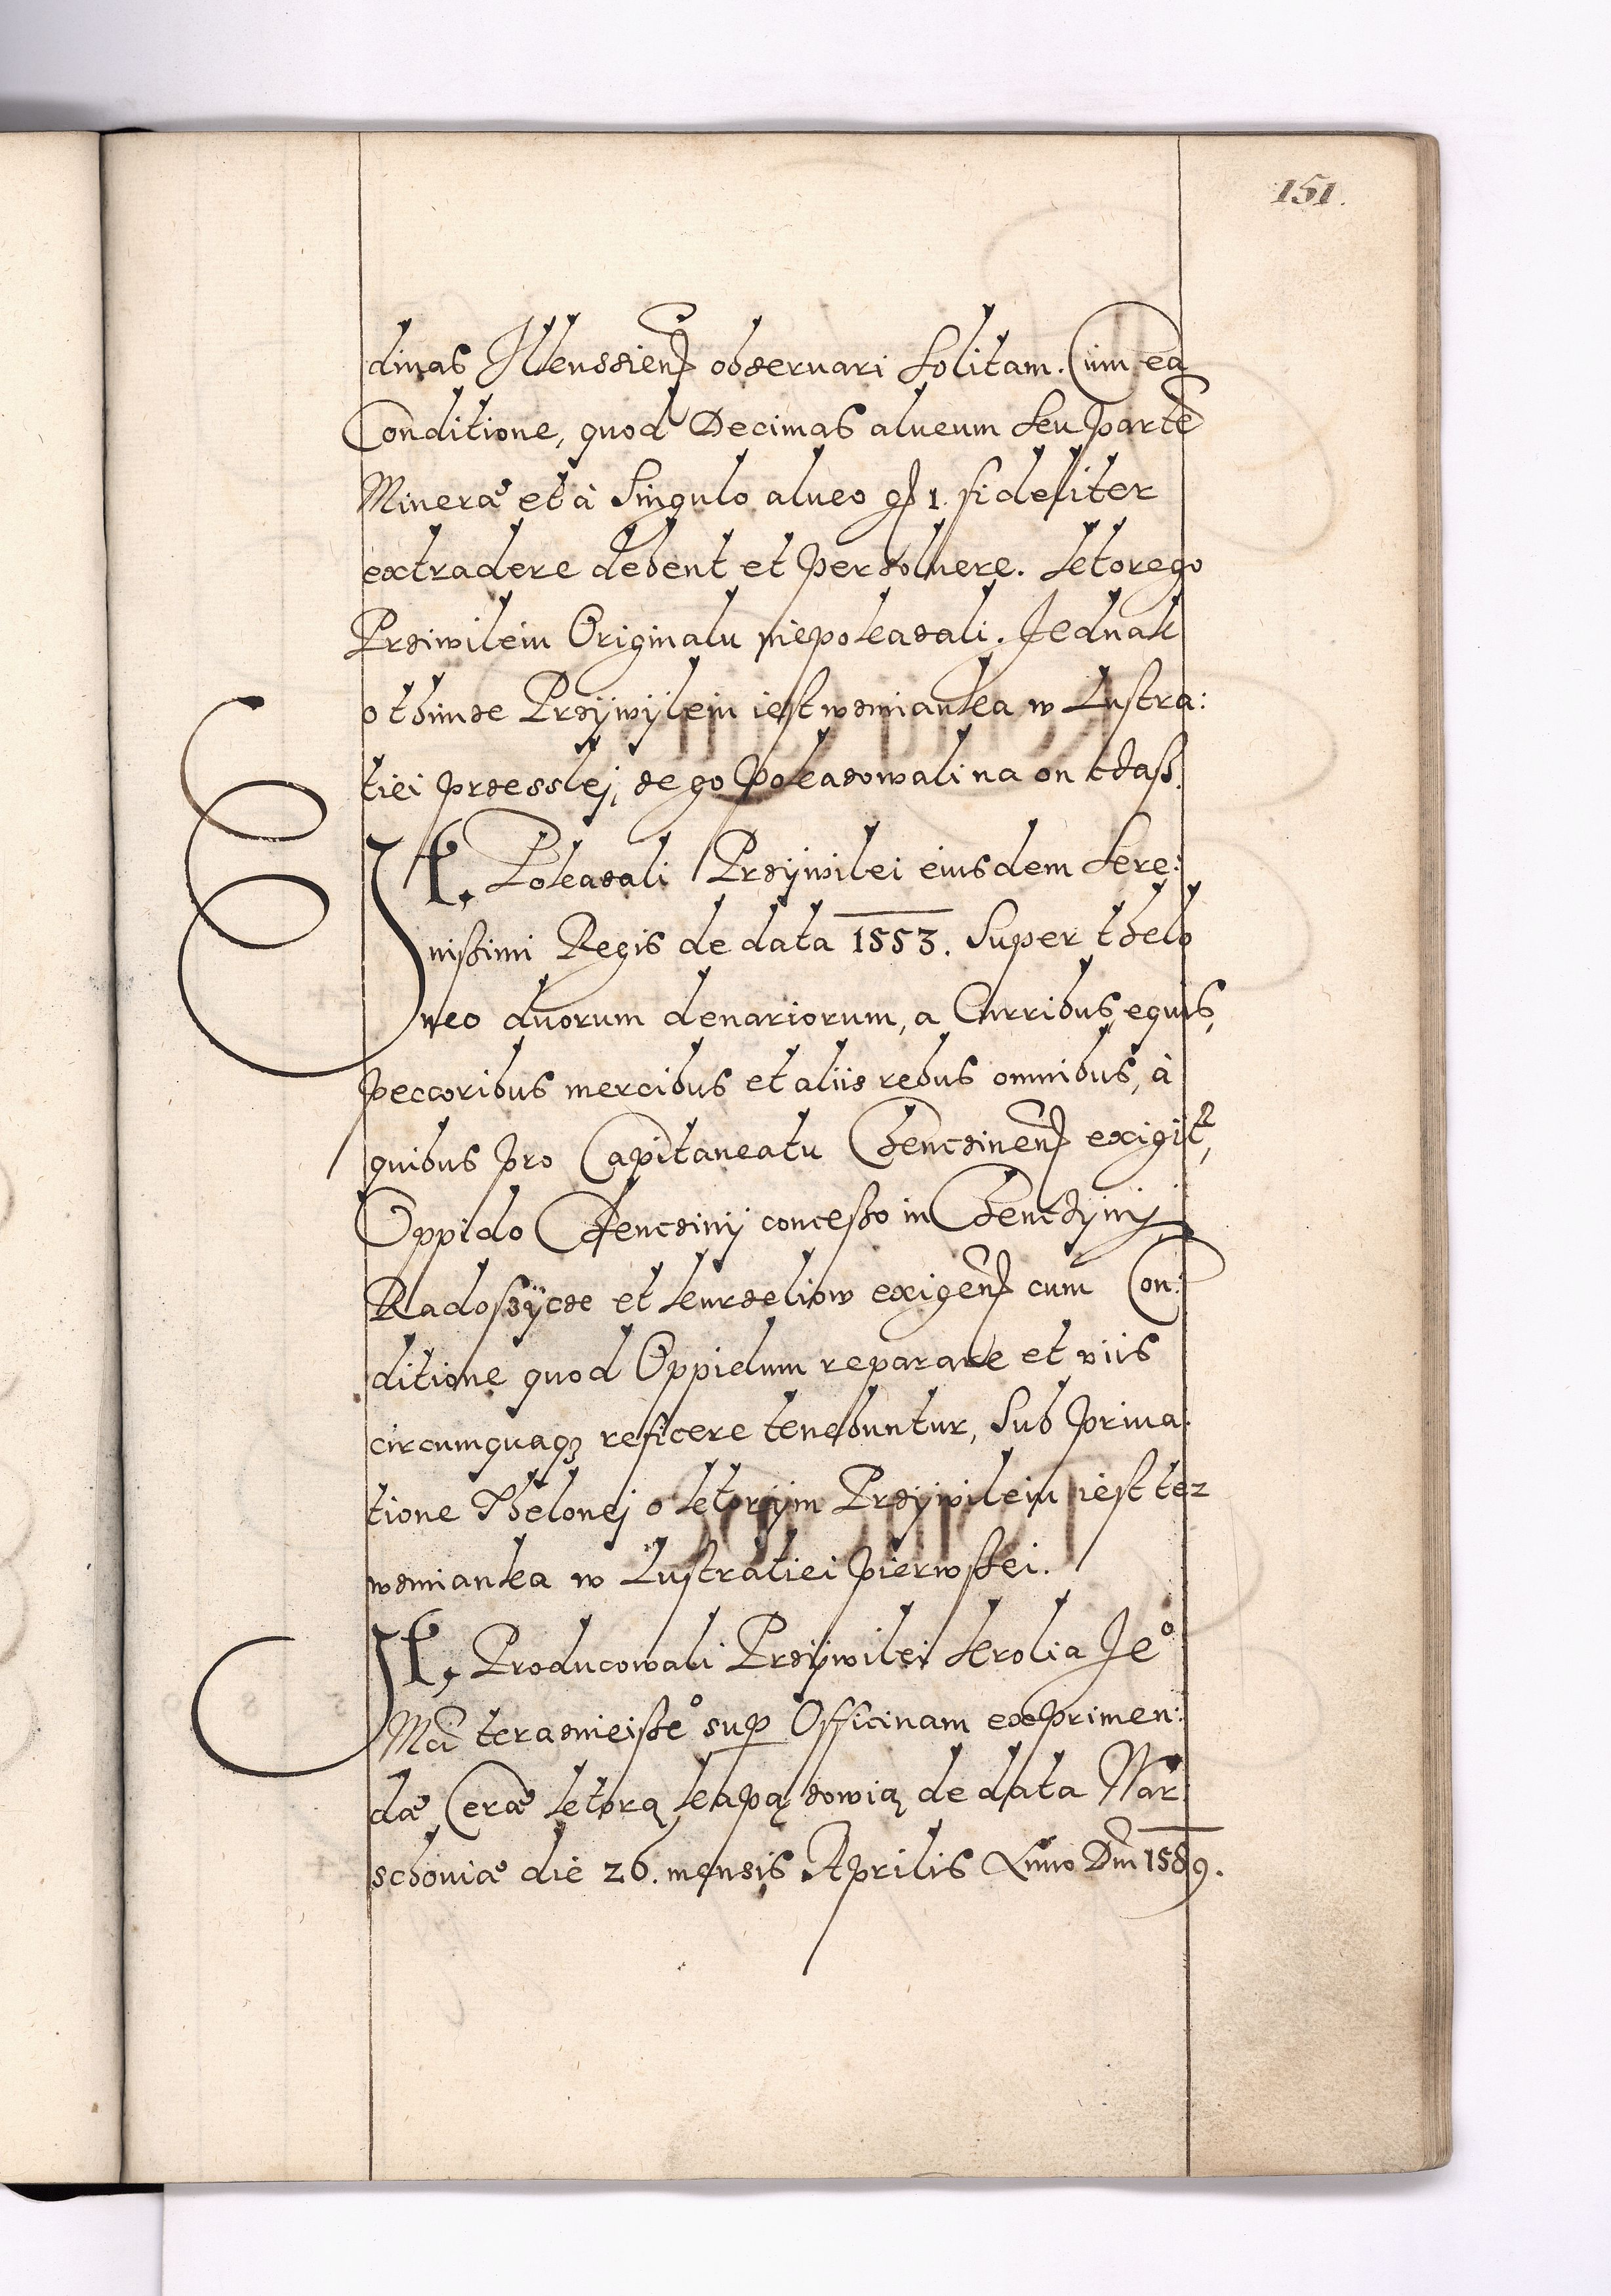 151.
dinas Ilkussien observari solitam. Cum ea
Conditione, quod Decimas alveum seu parte
Mineræ et à singulo alveo gſ 1. fideliter
extradere debent et persoluere. Ktorego
Prziwileiu Originalu niepokazali. Jednak
o thimze Przÿwÿleiu iest wzmianka w Lustra:
tiei przesslej, ze go pokazowali na on czaß.
It. Pokazali Przÿwilei eiusdem Sere:
nißimi Regis de data 1553. Super thelo
neo duorum denariorum, a Curribus, equis,
peccoribus mercibus et aliis rebus omnibus, à
quibus pro Capitaneatu Chencinen exigitr,
Oppido Chencziny conceßo in Chenczÿny,
Radoßÿcze et Kurzeliow exigen cum Con:
ditione quod Oppidum reparare et viis
circumquaqz reficere tenebuntur, sub priua:
tione Thelonej o ktorym Przÿwileiu iest tez
wzmianka w Lustratiei pierwßei.
It, Producowali Przÿwilei Krolia Jeo
Mći terazniejße⁰ sup Officinam exprimen:
dæ Ceræ ktorą kapą zowią de data War:
schoviæ die 26. mensis Aprilis Anno Dm 1589.